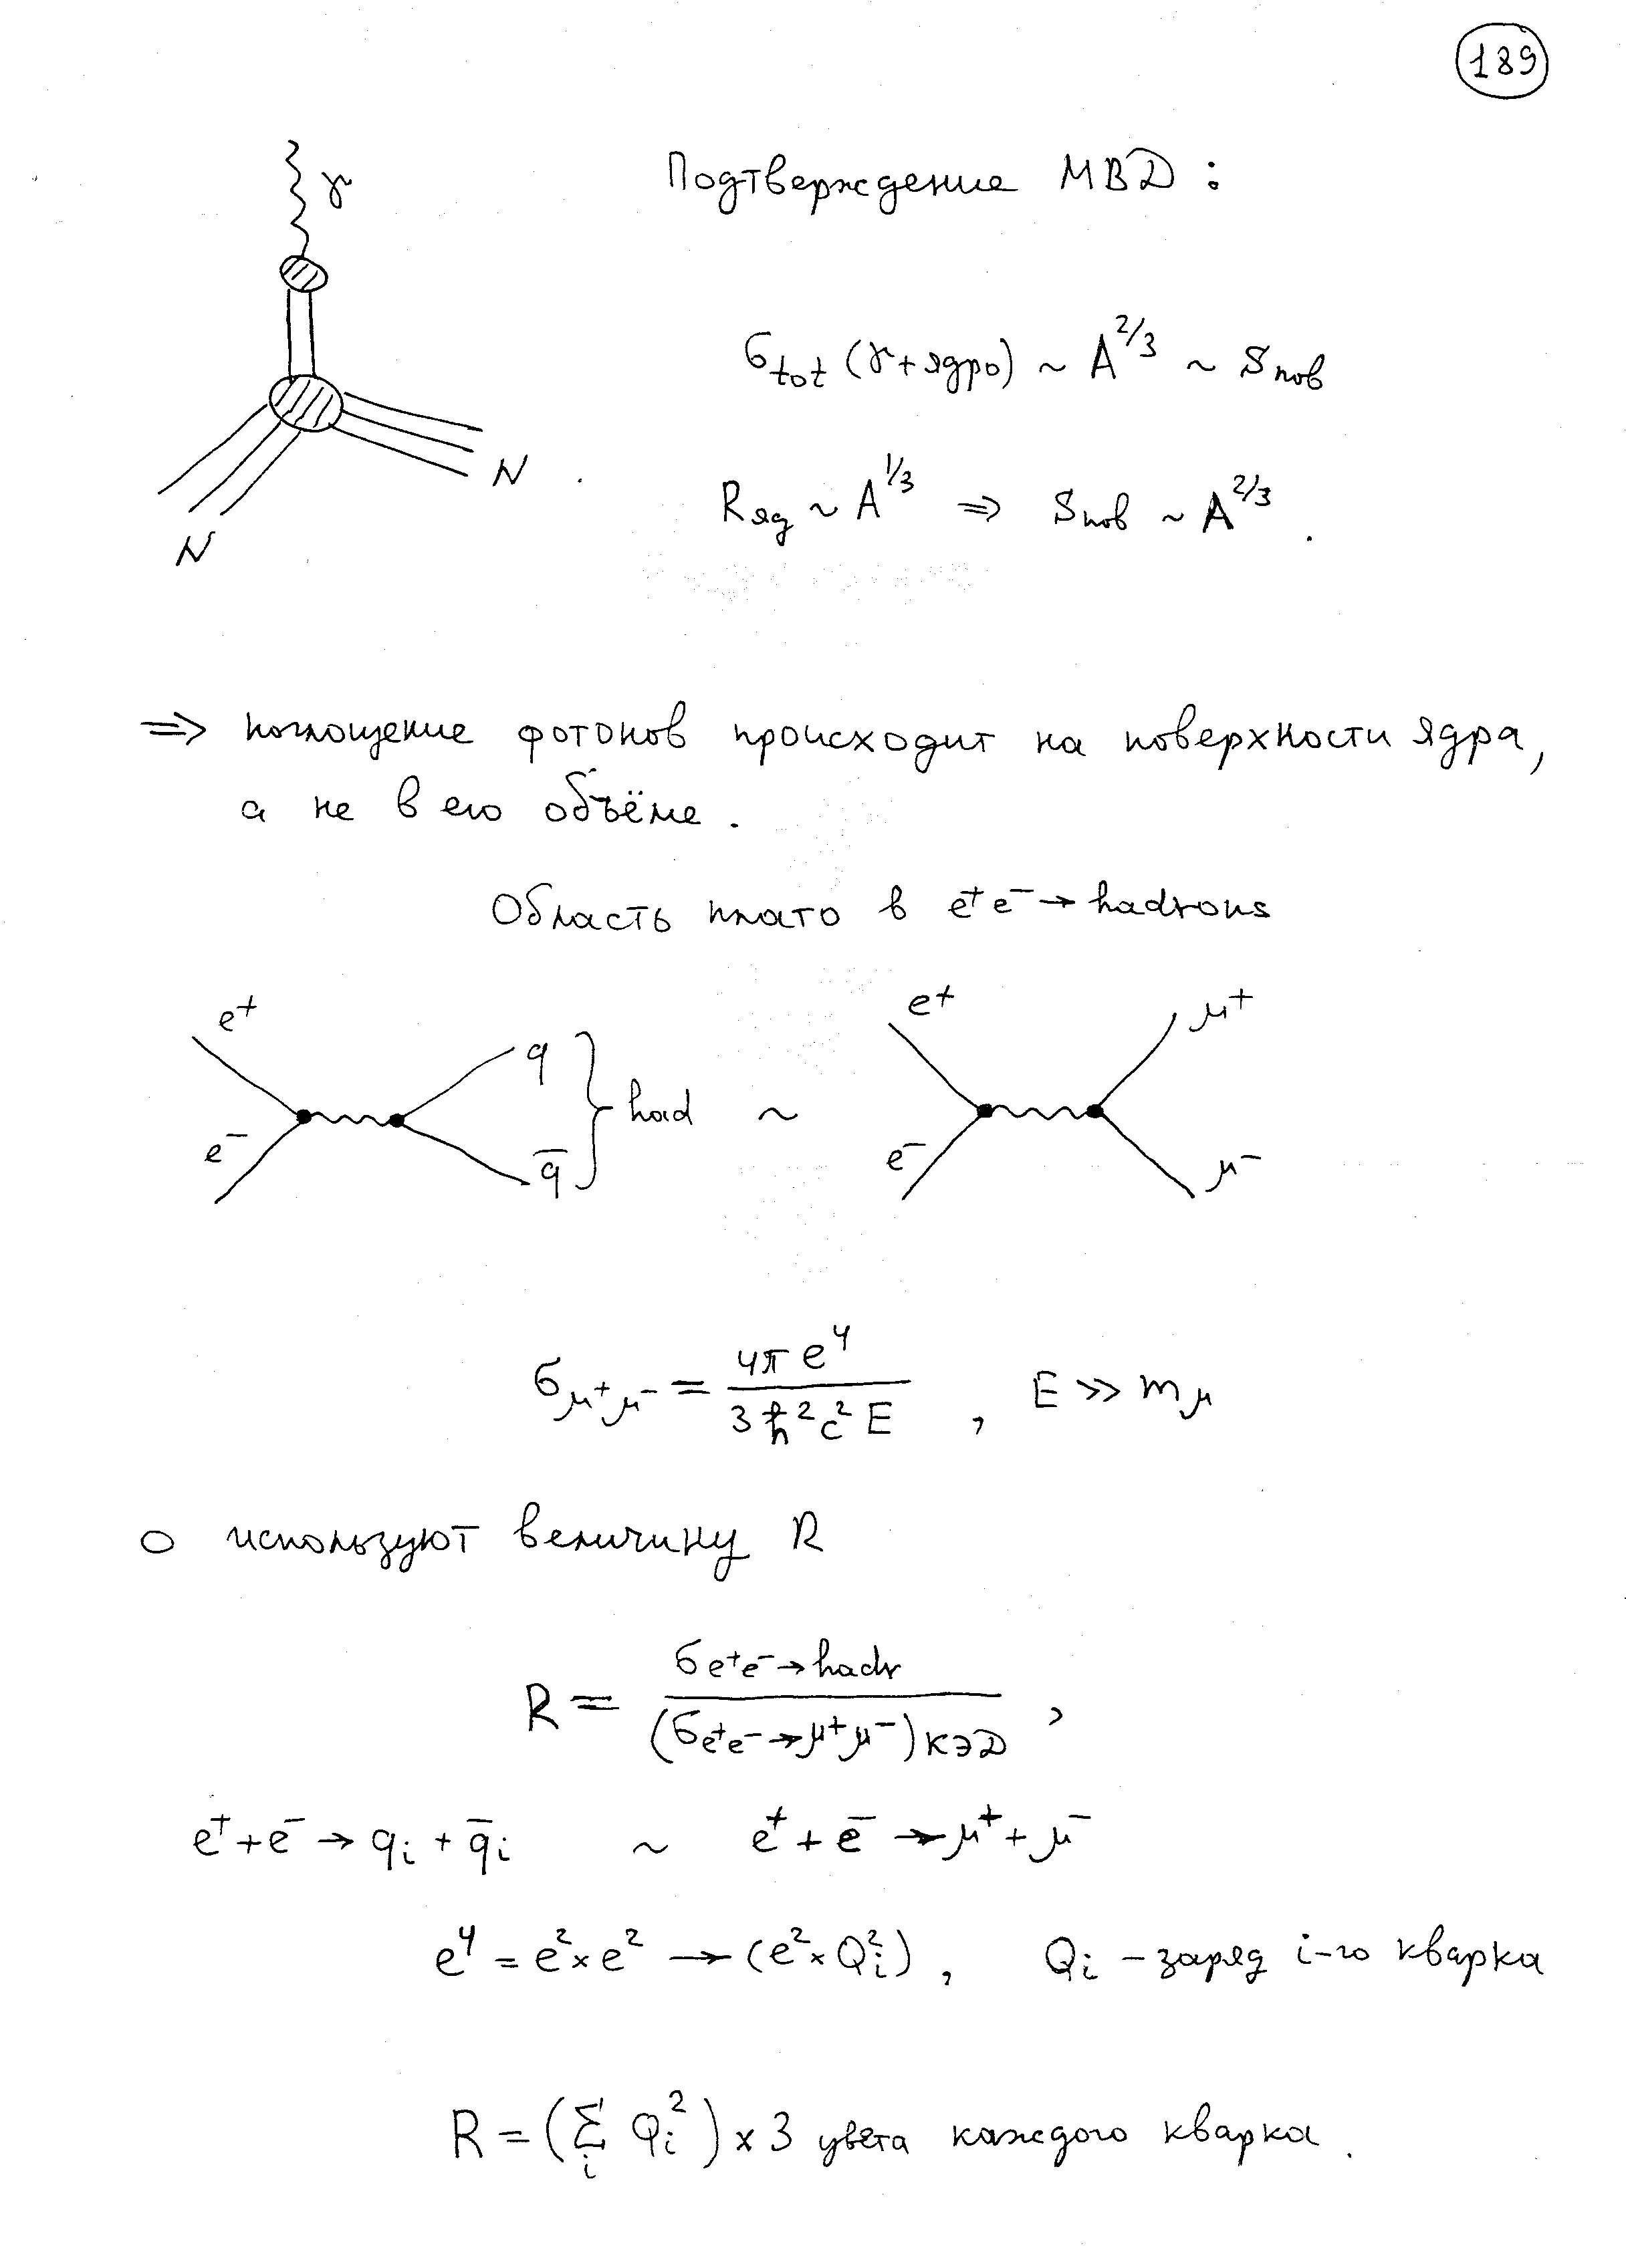 189
γ
N
N
Подтверждение МВД :
σ_tot (γ+ядро) ~ A^2/3 ~ S_пов
R_яд ~ A^1/3 ⇒ S_пов ~ A^2/3 .
⇒ поглощение фотонов происходит на поверхности ядра,
а не в его объёме .
Область плато в e⁺e⁻→hadrons
e⁺ q } had ~ e⁺ μ⁺
e⁻ q̄ e⁻ μ⁻
σ_μ⁺μ⁻ = 4π e⁴ / 3ħ²c²E , E ≫ m_μ
○ используют величину R
R = σ_e⁺e⁻→hadr / (σ_e⁺e⁻→μ⁺μ⁻)_КЭД ,
e⁺+e⁻ → q_i + q̄_i ~ e⁺ + e⁻ → μ⁺ + μ⁻
e⁴ = e² × e² → (e² × Q_i²) , Q_i – заряд i-го кварка
R = (∑_i Q_i²) × 3 цвета каждого кварка .